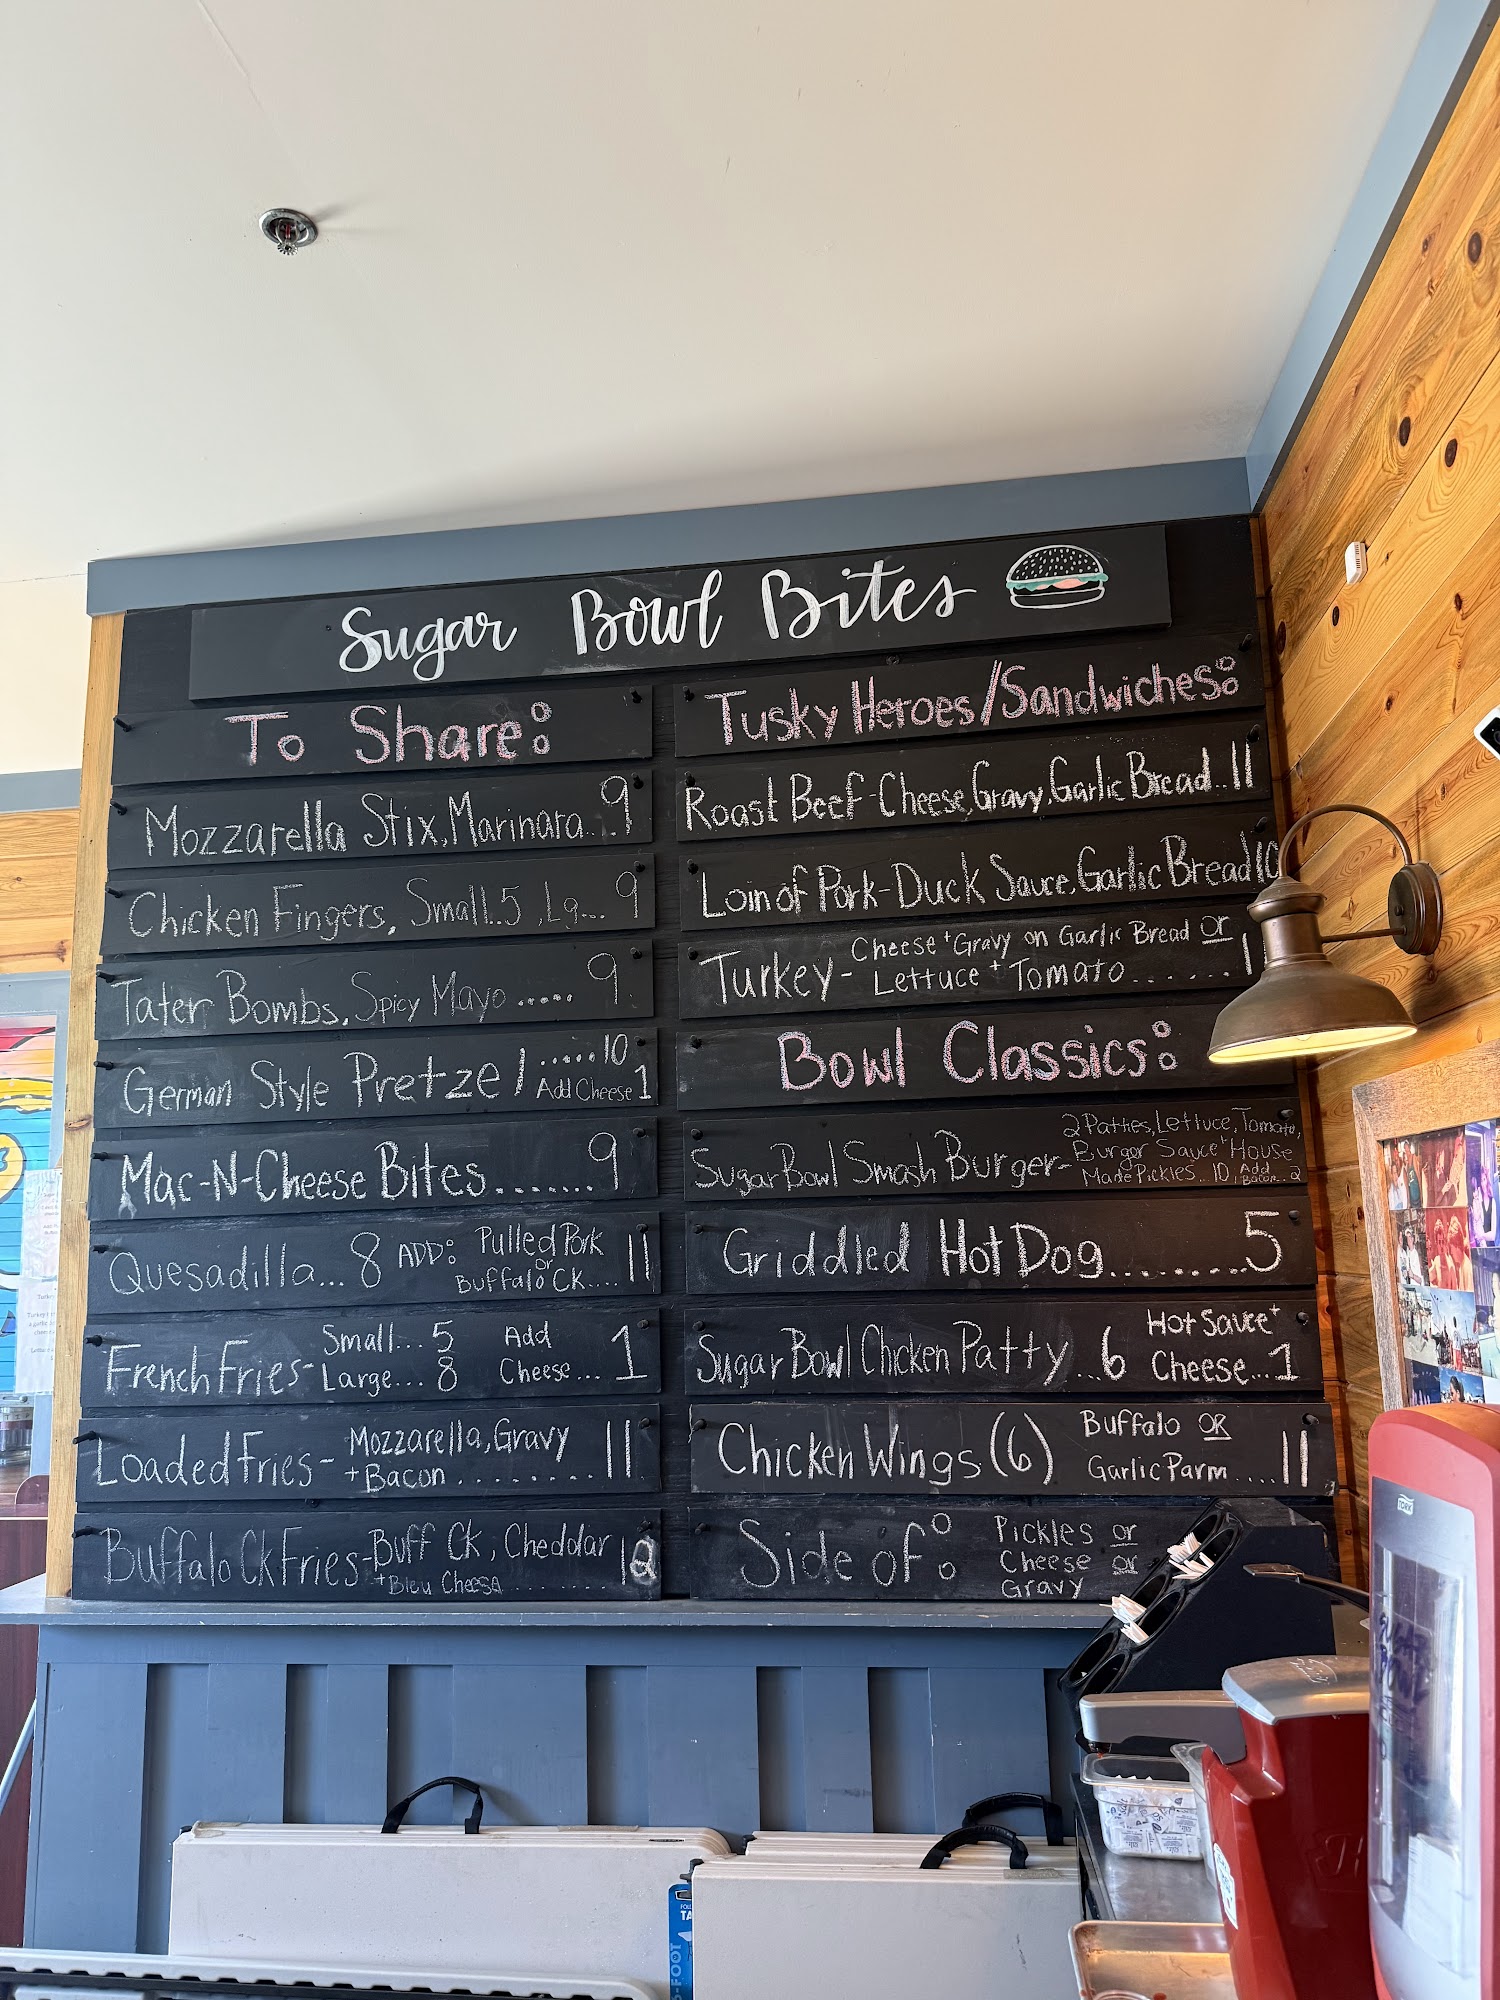 Sugar Bowl Bites
To Share:
Mozzarella Stix, Marinara... 9
Chicken Fingers, Small..5, Lg... 9
Tater Bombs, Spicy Mayo ..... 9
German Style Pretzel .....10
Add Cheese 1
Mac-N-Cheese Bites....... 9
Quesadilla... 8 ADD: Pulled Pork
or
Buffalo Ck.... 11
French Fries- Small... 5 Add
Large... 8 Cheese... 1
Loaded Fries- Mozzarella, Gravy
+ Bacon ......... 11
Buffalo Ck Fries- Buff Ck, Cheddar
+ Bleu Cheese ......... 12
Tusky Heroes/Sandwiches:
Roast Beef-Cheese, Gravy, Garlic Bread.. 11
Loin of Pork-Duck Sauce, Garlic Bread 10
Turkey- Cheese + Gravy on Garlic Bread or
Lettuce + Tomato .......
Bowl Classics:
Sugar Bowl Smash Burger- 2 Patties, Lettuce, Tomato,
Burger Sauce + House
Made Pickles.. 10, Add Bacon.. 2
Griddled Hot Dog......... 5
Sugar Bowl Chicken Patty... 6 Hot Sauce +
Cheese... 1
Chicken Wings (6) Buffalo OR
Garlic Parm .... 11
Side of: Pickles or
Cheese or
Gravy
TORK